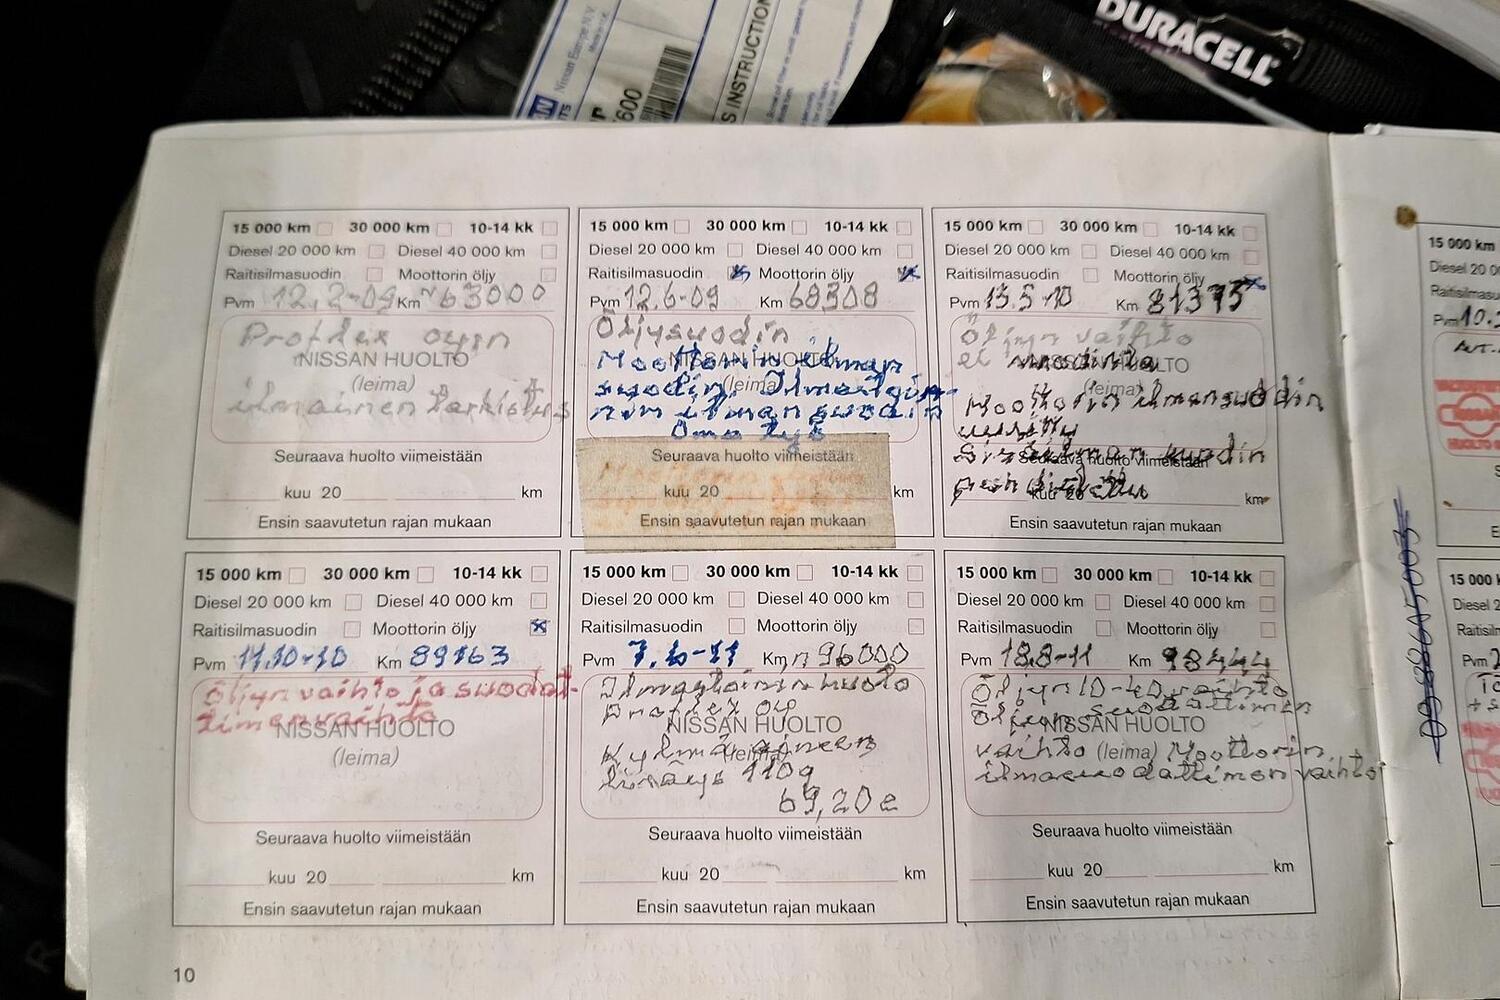 DURACELL
Nissan Europe N.V.
600
S INSTRUCTION
15 000 km 30 000 km 10-14 kk
Diesel 20 000 km Diesel 40 000 km
Raitisilmasuodin Moottorin öljy
Pvm 12.2-09 Km ~63000
Profdex oyin
NISSAN HUOLTO
(leima)
ilmainen tarkistus
Seuraava huolto viimeistään
kuu 20 km
Ensin saavutetun rajan mukaan
15 000 km 30 000 km 10-14 kk
Diesel 20 000 km Diesel 40 000 km
Raitisilmasuodin Moottorin öljy
Pvm 12.6-09 Km 68308
Öljysuodin
Moottorin ilman
NISSAN HUOLTO
suodin
(leima)
ilman suodin
Oma työ
Seuraava huolto viimeistään
kuu 20 km
Ensin saavutetun rajan mukaan
15 000 km 30 000 km 10-14 kk
Diesel 20 000 km Diesel 40 000 km
Raitisilmasuodin Moottorin öljy
Pvm 15.5-10 Km 81375
Öljyn vaihto
ei suodinta
NISSAN HUOLTO
(leima)
Moottorin ilmansuodin
uusittu
Sisäilman suodin
Seuraava huolto viimeistään
puhdistettu
kuu 20 km
Ensin saavutetun rajan mukaan
15 000 km 30 000 km 10-14 kk
Diesel 20 000 km Diesel 40 000 km
Raitisilmasuodin Moottorin öljy
Pvm 11.10-10 Km 89163
Öljyn vaihto ja suodat-
timen vaihto
NISSAN HUOLTO
(leima)
Seuraava huolto viimeistään
kuu 20 km
Ensin saavutetun rajan mukaan
15 000 km 30 000 km 10-14 kk
Diesel 20 000 km Diesel 40 000 km
Raitisilmasuodin Moottorin öljy
Pvm 7.6-11 Km n 96000
Ilmastoinin huolto
Profdex oy
NISSAN HUOLTO
Kylmäaineen
(leima)
lisäys 110g
69,20e
Seuraava huolto viimeistään
kuu 20 km
Ensin saavutetun rajan mukaan
15 000 km 30 000 km 10-14 kk
Diesel 20 000 km Diesel 40 000 km
Raitisilmasuodin Moottorin öljy
Pvm 18.8-11 Km 98444
Öljyn 10-40 vaihto
Öljyn suodattimen
NISSAN HUOLTO
vaihto (leima) Moottorin
ilmasuodattimen vaihto
Seuraava huolto viimeistään
kuu 20 km
Ensin saavutetun rajan mukaan
10
15 000 km
Diesel 20 0
Pvm 10.
HUOLTO
15 000 k
Diesel 2
Raitisiln
Pvm